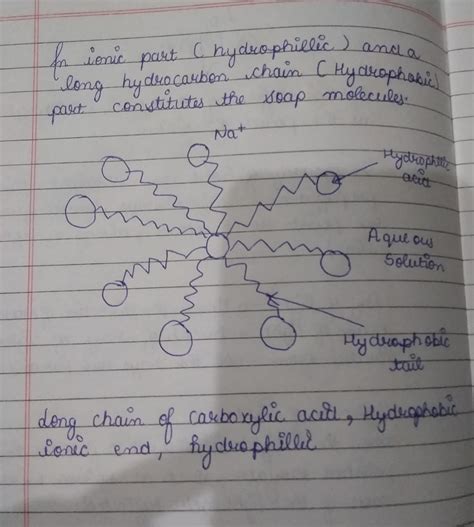 An ionic part (hydrophillic) and a
long hydrocarbon chain (Hydrophobic)
part constitutes the soap molecules.
Na+
Hydrophilic
acid
Aqueous
Solution
Hydrophobic
tail
Long chain of carboxylic acid, Hydrophobic
ionic end, hydrophillic